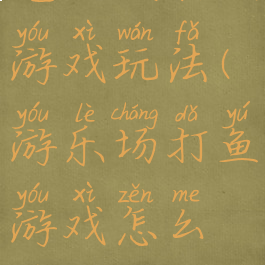 yóu xì wán fǎ
游戏玩法(
yóu lè chǎng dǎ yú
游乐场打鱼
yóu xì zěn me
游戏怎么